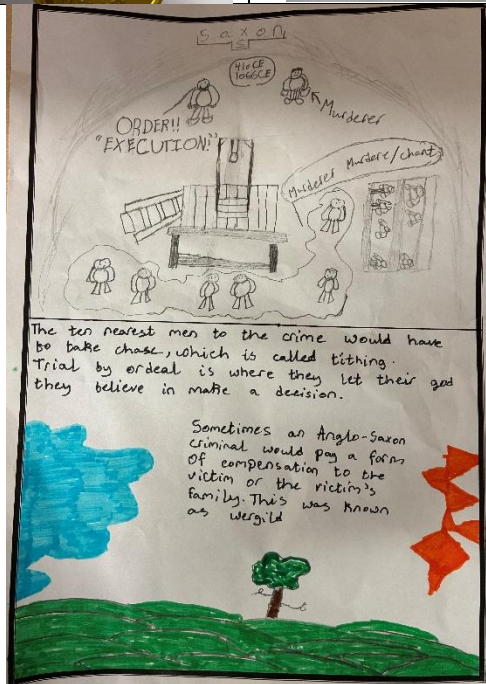 Saxon
S
410CE
1066CE
Murderer
ORDER!!
"EXECUTION!"
Murderer Murdere/chant
The ten nearest men to the crime would have
to take chase, which is called tithing.
Trial by ordeal is where they let their god
they believe in make a decision.
Sometimes an Anglo-Saxon
criminal would pay a form
of compensation to the
victim or the victim's
family. This was known
as wergild